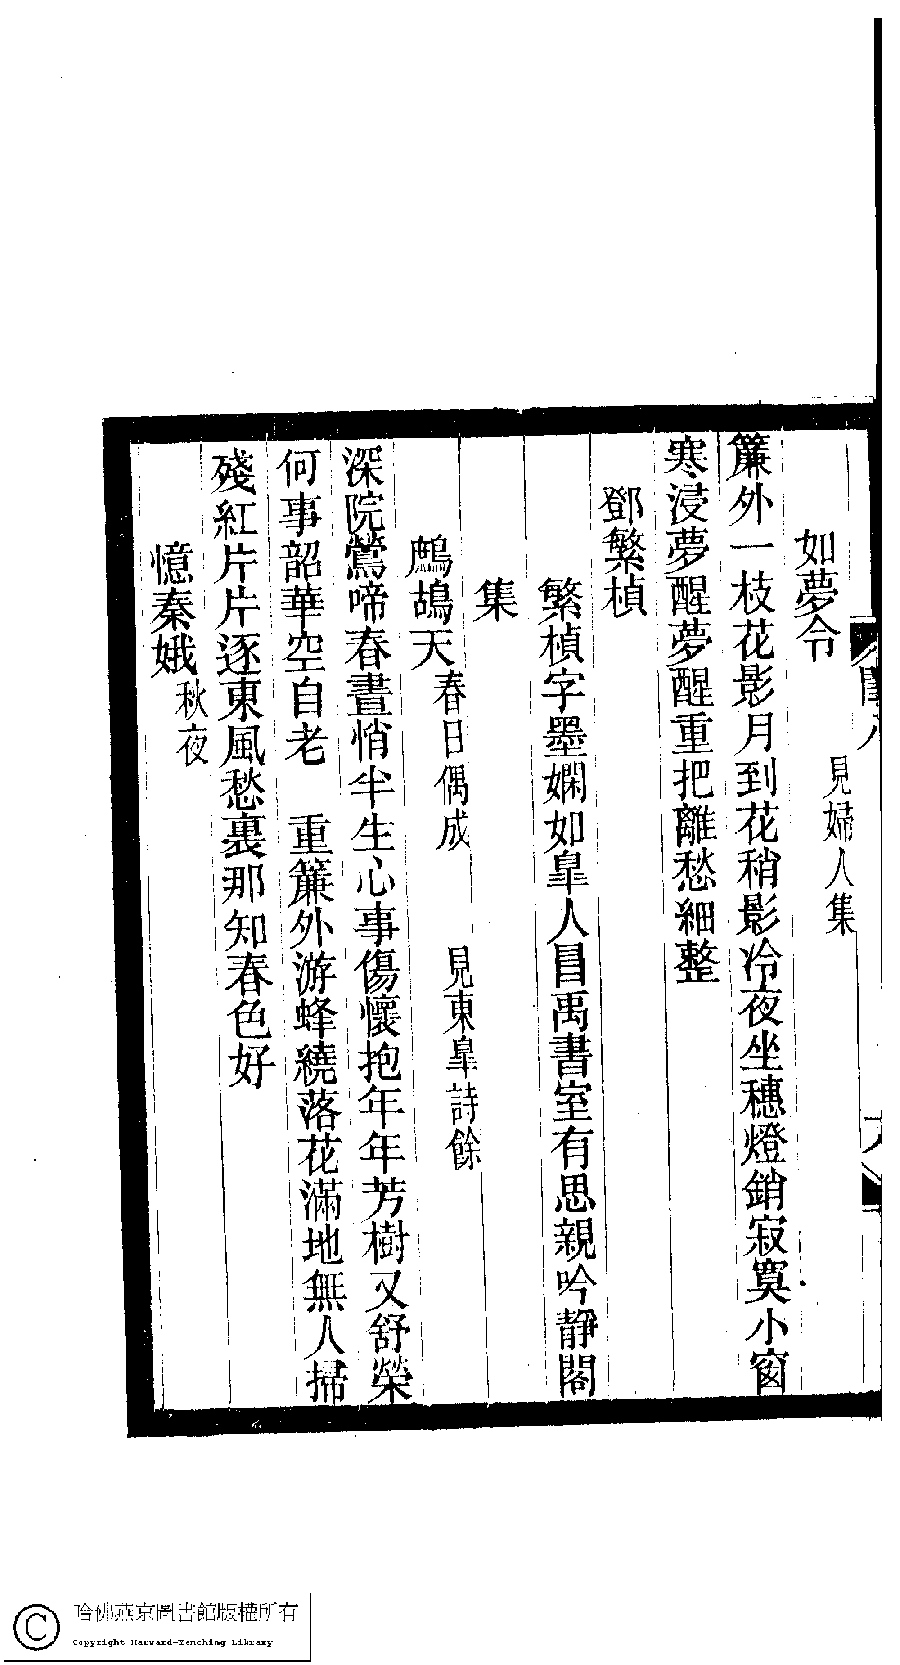 如夢令 見婦人集
簾外一枝花影月到花稍影冷夜坐穗燈銷寂寞小窗
寒浸夢醒夢醒重把離愁細整
鄧繁楨
繁楨字墨嫻如皐人冒禹書室有思親吟靜閣
集
鷓鴣天春日偶成 見東皐詩餘
深院鶯啼春晝悄半生心事傷懷抱年年芳樹又舒榮
何事韶華空自老 重簾外游蜂繞落花滿地無人掃
殘紅片片逐東風愁裏那知春色好
憶秦娥秋夜
哈佛燕京圖書館版權所有
Copyright Harvard-Yenching Library